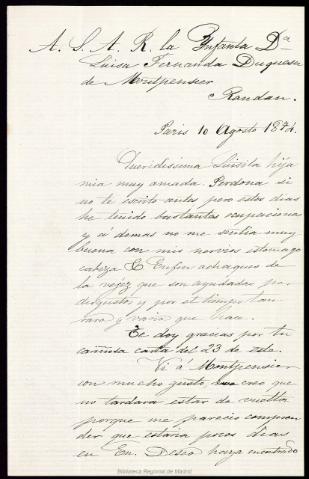 A. S. A. R. la Infanta Da
Luisa Fernanda Duquesa
de Montpensier
Randan.
Paris 10 Agosto 1874.
Queridissima Luisita hija
mia muy amada. Perdona si
no te escrito antes pero estos dias
he tenido bastantes ocupaciones
y á demas no me sentia muy
buena con mis nervios estomago
cabeza & Enfin achaques de
la vejez que son ayudados por
disgustos y por el tiempo tan
raro y vario que hace.
Te doy gracias por tu
cariñosa carta del 23 de este.
Vi á Montpensier
con mucho gusto, creo que
no tardara estar de vuelta
porque me parecio compren
der que estaria pocos dias
en En. Deseo haya encontrado
Biblioteca Regional de Madrid